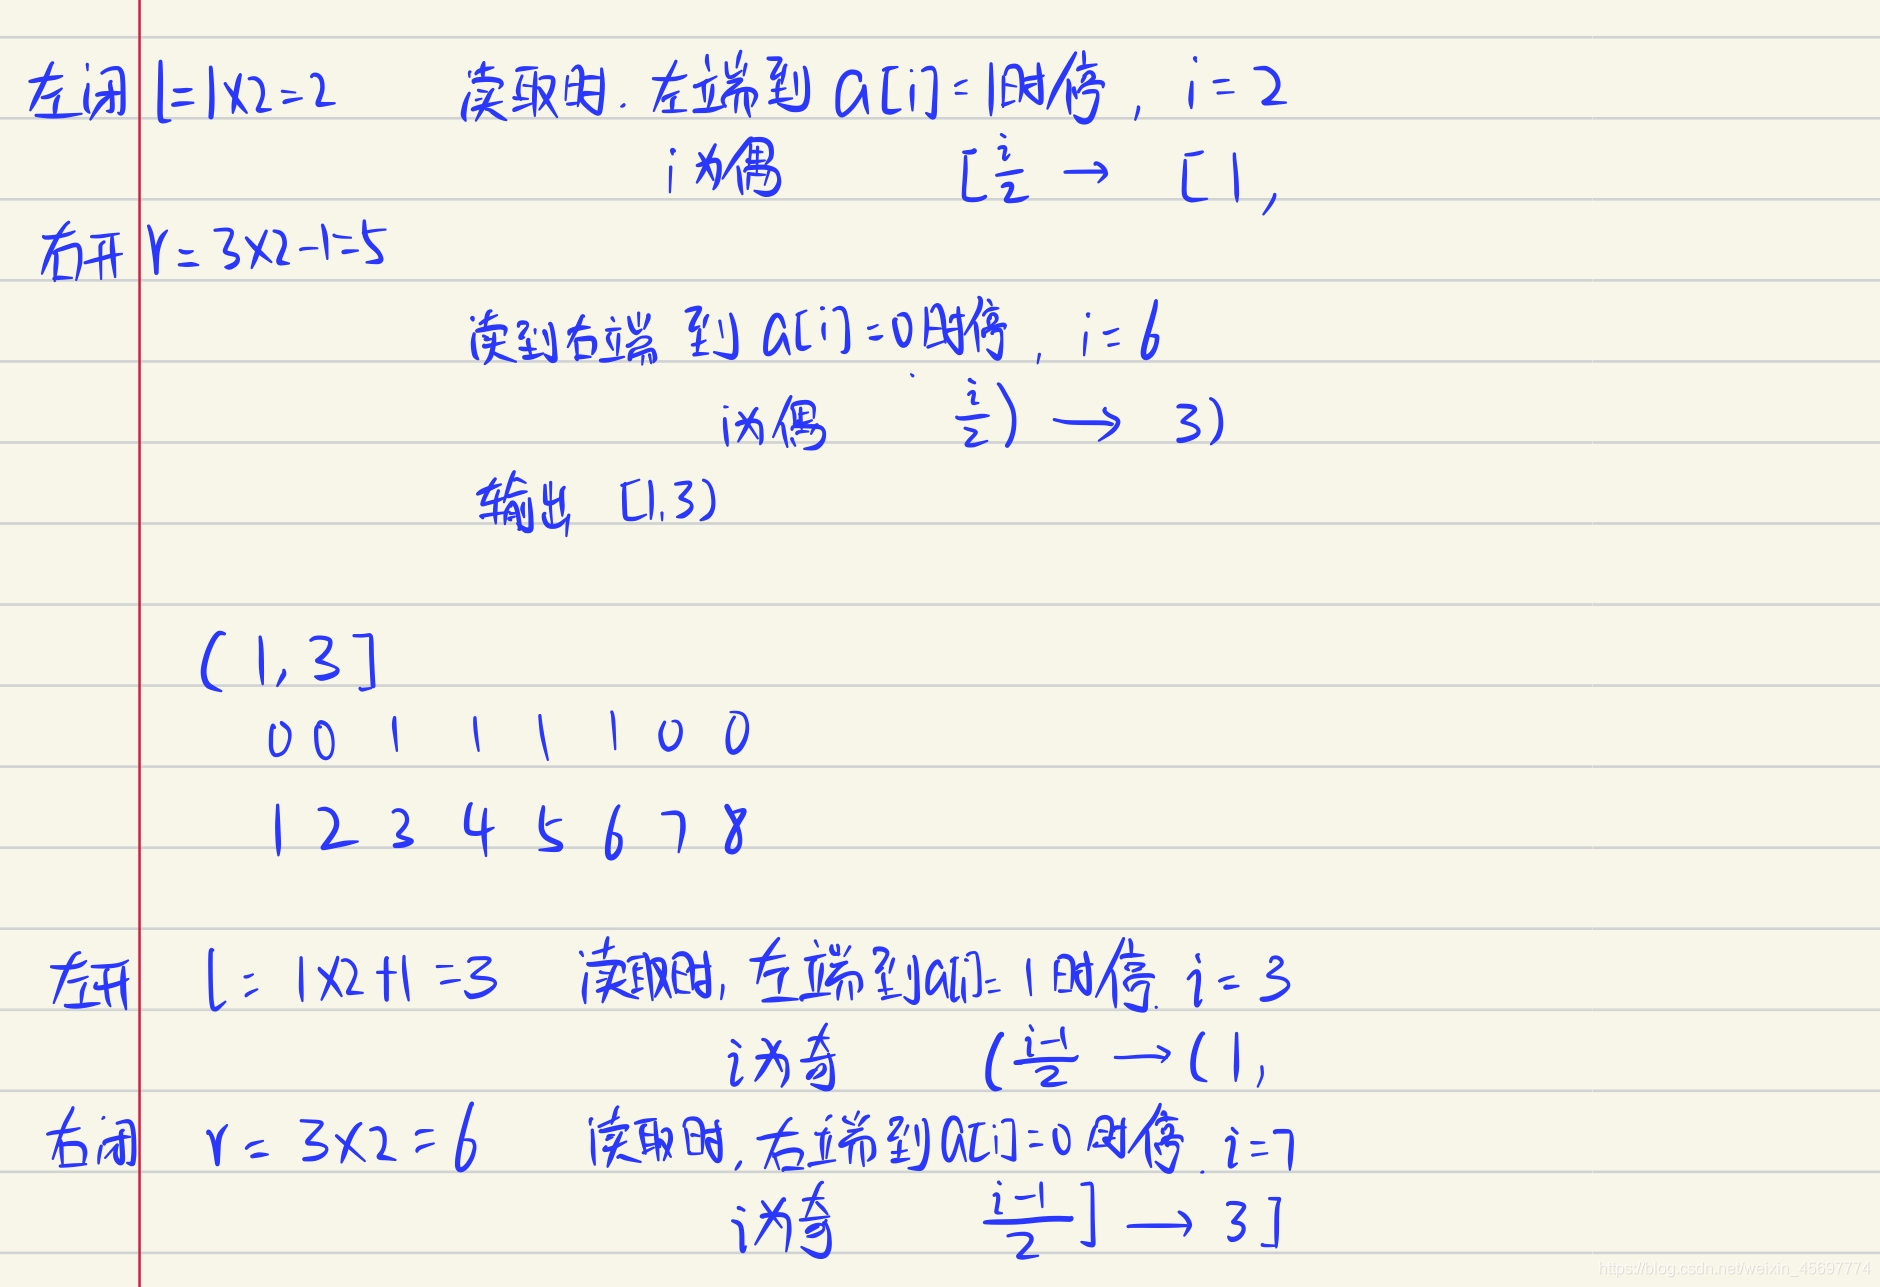 左闭 l=1×2=2 读取时.左端到a[i]=1时停, i=2
i为偶 [i/2 → [1,
右开 r=3×2-1=5
读到右端到a[i]=0时停, i=6
i为偶 i/2) → 3)
输出 [1,3)
(1,3]
0 0 1 1 1 1 0 0
1 2 3 4 5 6 7 8
左开 l=1×2+1=3 读取时,左端到a[i]=1时停.i=3
i为奇 (i-1/2 → (1,
右闭 r=3×2=6 读取时,右端到a[i]=0时停.i=7
i为奇 i-1/2] → 3]
https://blog.csdn.net/weixin_45697774